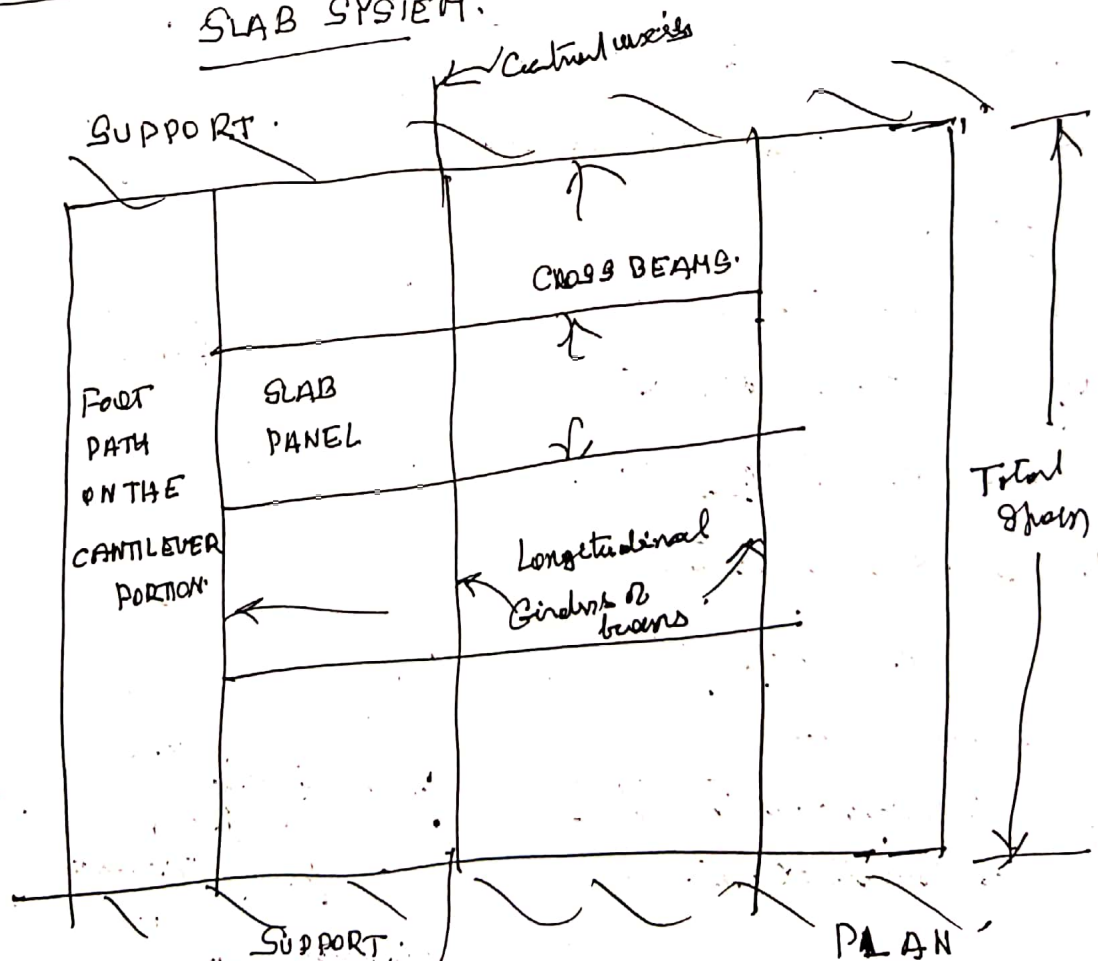 SLAB SYSTEM.
Central axis
SUPPORT.
CROSS BEAMS.
FOOT
PATH
ON THE
CANTILEVER
PORTION.
SLAB
PANEL
Longitudinal
Girders or
beams
Total
Span
SUPPORT.
PLAN